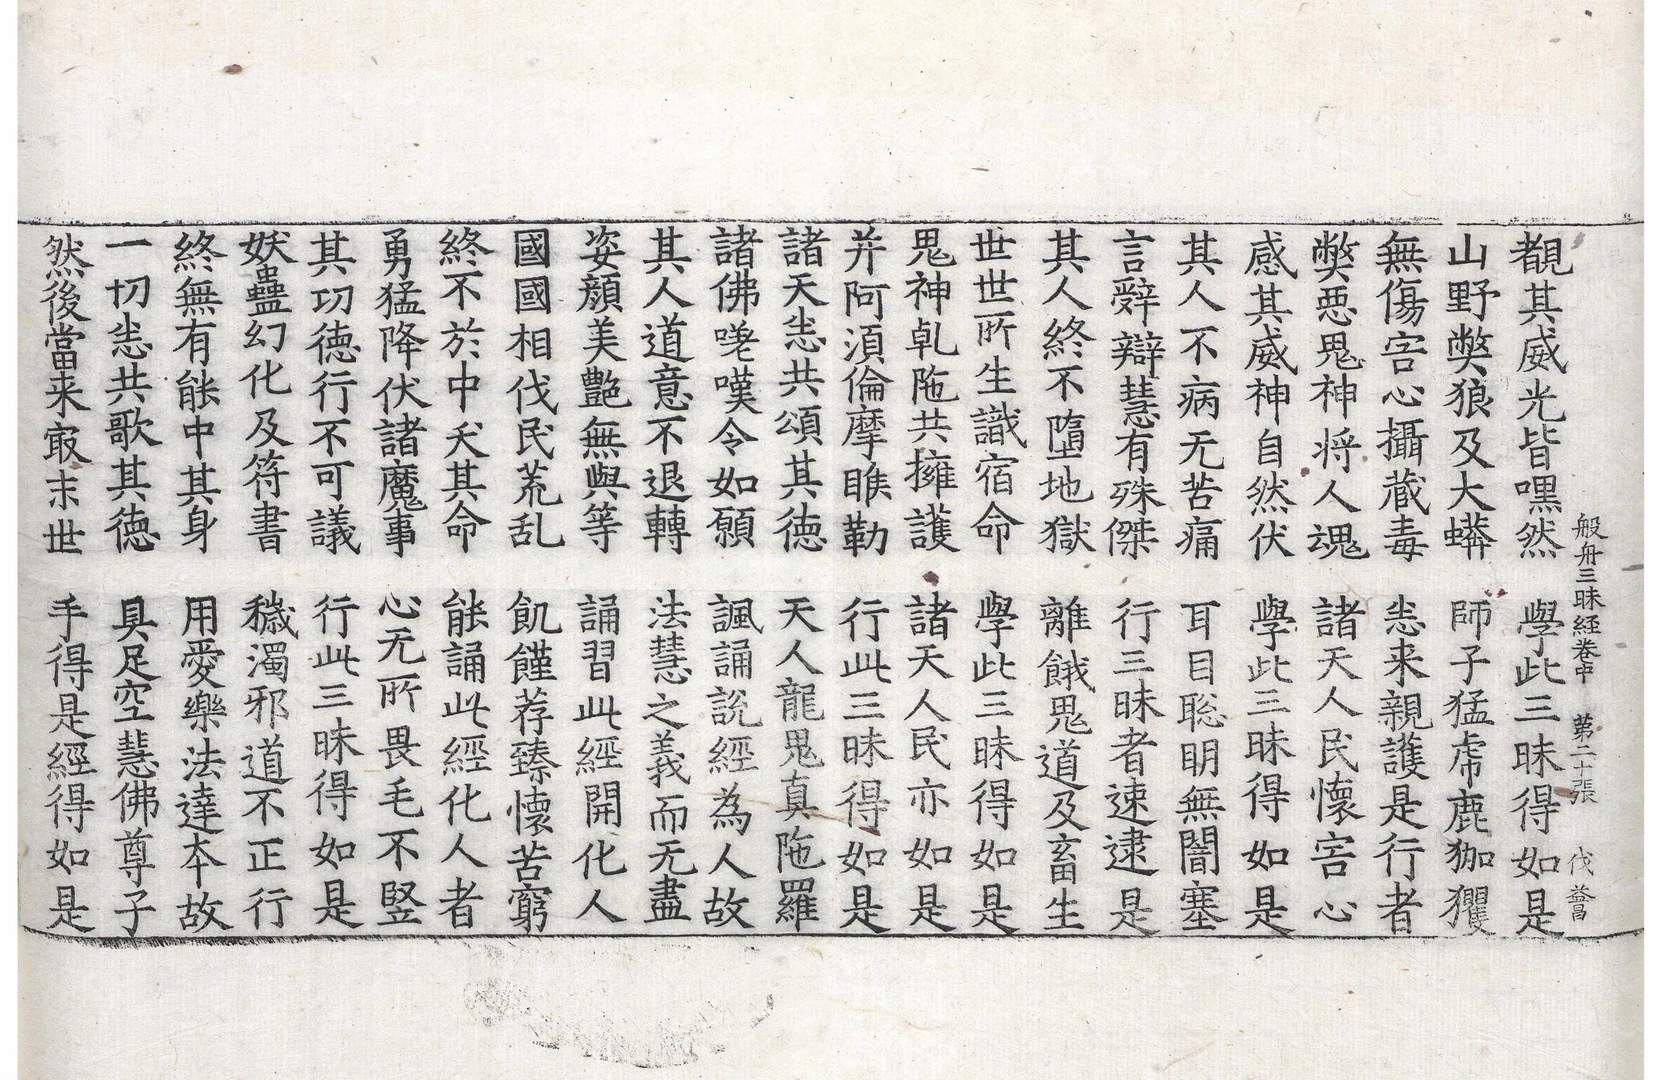 般舟三昧経卷中 第二十張 伐 益昌
覩其威光皆嘿然 學此三昧得如是
山野獘狼及大蟒 師子猛虎鹿狖玃
無傷害心攝藏毒 悉来親護是行者
獘惡鬼神将人魂 諸天人民懷害心
感其威神自然伏 學此三昧得如是
其人不病无苦痛 耳目聡明無闇塞
言辝辯慧有殊傑 行三昧者速逮是
其人終不墮地獄 離餓鬼道及畜生
世世所生識宿命 學此三昧得如是
鬼神乹陁共擁護 諸天人民亦如是
并阿須倫摩睢勒 行此三昧得如是
諸天悉共頌其德 天人龍鬼真陁羅
諸佛嗟嘆令如願 諷誦說經為人故
其人道意不退轉 法慧之義而无盡
姿顔美艶無與等 誦習此經開化人
國國相伐民荒乱 飢饉荐臻懷苦窮
終不於中夭其命 能誦此經化人者
勇猛降伏諸魔事 心无所畏毛不竪
其功徳行不可議 行此三昧得如是
妖蠱幻化及符書 穢濁邪道不正行
終無有能中其身 用愛樂法達夲故
一切悉共歌其德 具足空慧佛尊子
然後當来㝡末世 手得是經得如是